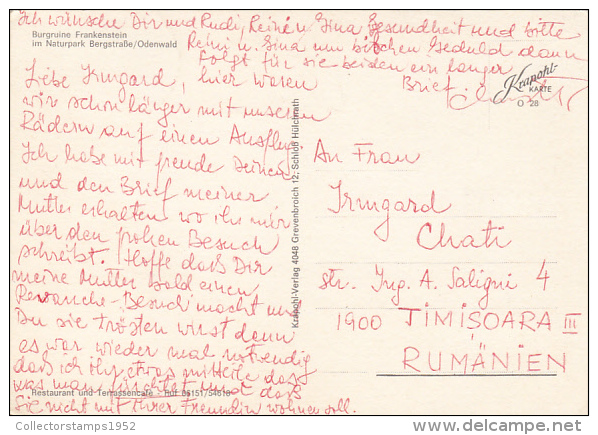 Ich wünsche Dir und Rudi, Reini u. Gina Gesundheit und bitte
Reini u. Gina um bißchen Geduld dann
folgt für sie beiden ein langer
Brief.
Burgruine Frankenstein
im Naturpark Bergstraße/Odenwald
Liebe Irmgard, hier waren
wir schon länger mit unseren
Rädern auf einen Ausflug
Ich habe mit freude Deinen
und den Brief meiner
Mutter erhalten wo ihr mir
über den frohen Besuch
schreibt. Hoffe daß Dir
meine Mutter bald einen
Revanche-Besuch macht und
Du sie trösten wirst denn
es war wieder mal notwendig
daß ich ihr etwas mitteile daß
was man
Restaurant und Terrassencafe - Ruf 06151/54618
Sie nicht mit Ihrer Freundin wohnen soll.
Krapohl-Verlag 4048 Grevenbroich 12, Schloß Hülchrath
Krapohl-
KARTE
O 28
An Frau
Irmgard
Chati
str. Ing. A. Saligni 4
1900 TIMIȘOARA III
RUMÄNIEN
Collectorstamps1952
www.delcampe.net